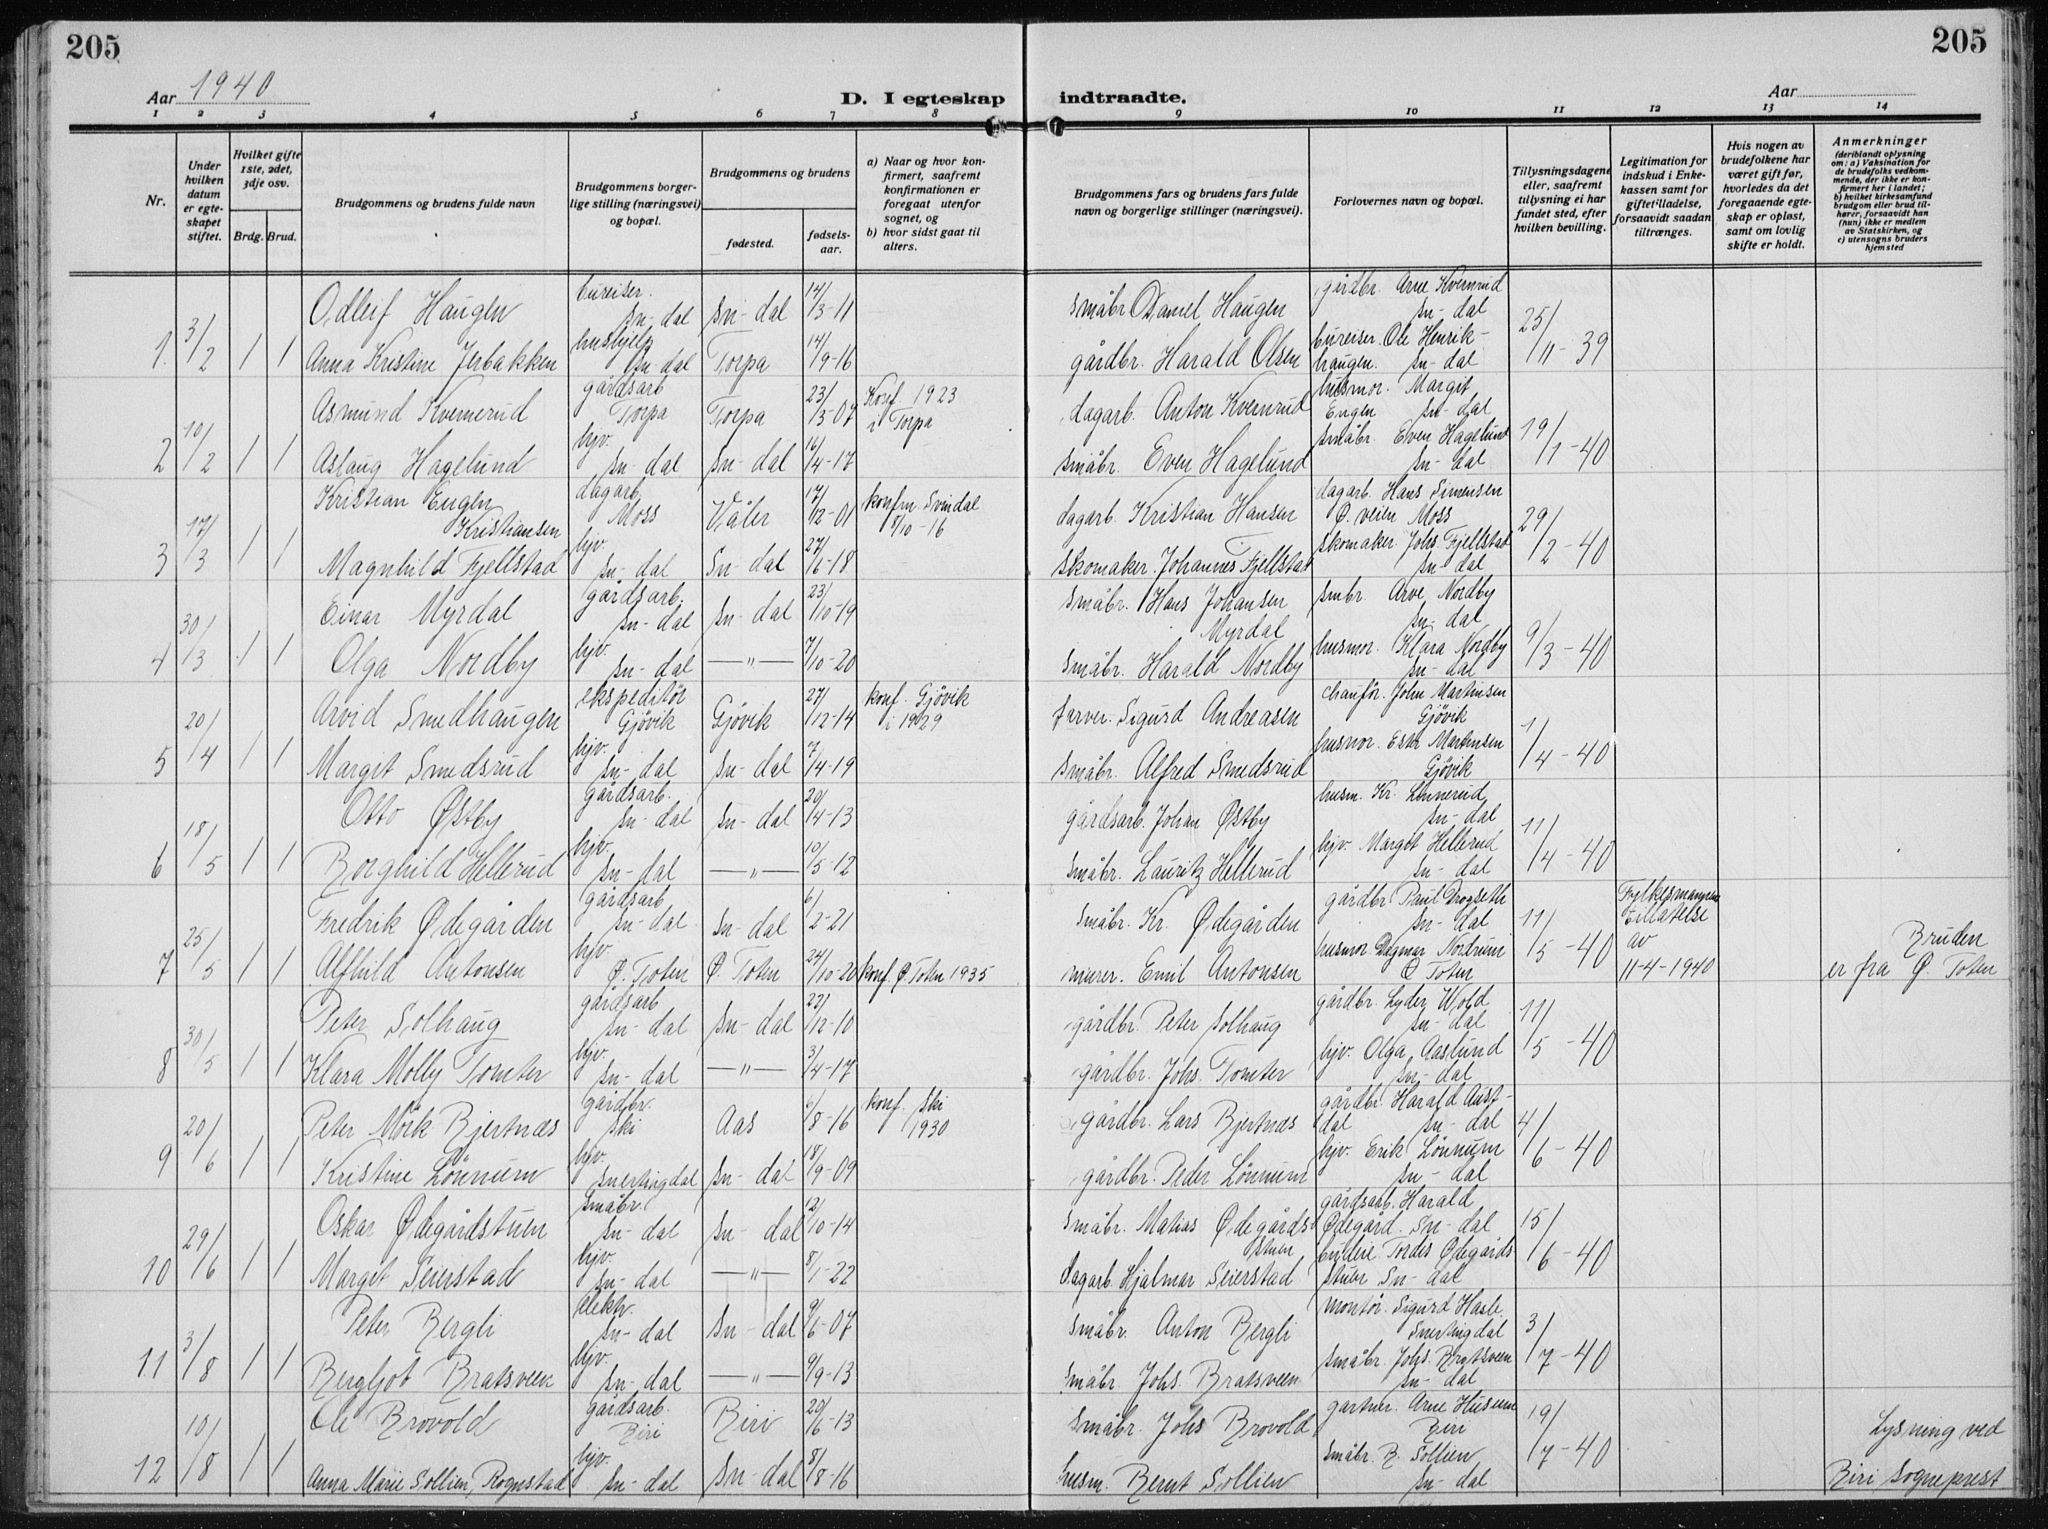 205
205
Aar 1940
D. I egteskap
indtraadte.
Aar
1 2 3 4 5 6 7 8 9 10 11 12 13 14
Nr.
Under hvilken datum er egteskapet stiftet.
Hvilket gifte 1ste, 2det, 3dje osv.
Brdg. Brud.
Brudgommens og brudens fulde navn
Brudgommens borgerlige stilling (næringsvei) og bopæl.
Brudgommens og brudens
fødested.
fødselsaar.
a) Naar og hvor konfirmert, saafremt konfirmationen er foregaat utenfor sognet, og
b) hvor sidst gaat til alters.
Brudgommens fars og brudens fars fulde navn og borgerlige stillinger (næringsvei).
Forlovernes navn og bopæl.
Tillysningsdagene eller, saafremt tillysning ei har fundet sted, efter hvilken bevilling.
Legitimation for indskud i Enkekassen samt for giftetilladelse, forsaavidt saadan tiltrænges.
Hvis nogen av brudefolkene har været gift før, hvorledes da det foregaaende egteskap er opløst, samt om lovlig skifte er holdt.
Anmerkninger
(deriblandt oplysning om: a) Vaksination for de brudefolks vedkommende, der ikke er konfirmert her i landet; b) hvilket kirkesamfund brudgom eller brud tilhører, forsaavidt han (hun) ikke er medlem av Statskirken, og c) utensogns bruders hjemsted
1. 3/2 1 1
Odleif Haugen bureiser. Sn-dal Sn-dal 14/3-11 småbr. Daniel Haugen gårdbr. Arne Kvernrud Sn-dal 25/11-39
Anna Kristine Jerbakken hushjelp Sn-dal Torpa 14/9-16 gårdbr. Harald Olsen bureiser Ole Henrikhaugen. Sn-dal
2 10/2 1 1
Asmund Kvernerud gårdsarb Torpa Torpa 23/3-07 Konf 1923 i Torpa dagarb. Anton Kvernrud husmor. Margit Engen Sn-dal 19/1-40
Aslaug Hagelund hjv. Sn-dal Sn-dal 16/4-17 småbr. Even Hagelund småbr. Even Hagelund Sn-dal
3 17/3 1 1
Kristian Eugen Kristiansen dagarb. Moss Våler 17/12-01 konfm Svindal 8/10-16 dagarb. Kristian Hansen dagarb. Hans Simensen Ø. veien Moss 29/2-40
Magnhild Fjellstad hjv. Sn-dal Sn-dal 27/6-18 Skomaker. Johannes Fjellstad skomaker Johs. Fjellstad Sn-dal
4 30/3 1 1
Einar Myrdal gårdsarb. Sn-dal Sn-dal 23/10-19 småbr. Hans Johansen Myrdal smbr. Arve Nordby Sn-dal 9/3-40
Olga Nordby hjv. Sn-dal —"— 7/10-20 småbr. Harald Nordby husmor. Klara Nordby Sn-dal
5 20/4 1 1
Arvid Smedhaugen ekspeditør Gjövik Gjövik 27/12-14 konf. Gjövik i 1929 farver. Sigurd Andreasen chauför. John Martinsen Gjövik 1/4-40
Margit Smedsrud hjv. Sn-dal Sn-dal 7/4-19 småbr. Alfred Smedsrud husmor. Ester Martinsen Gjövik
6 18/5 1 1
Otto Østby gårdsarb. Sn-dal Sn-dal 20/4-13 gårdsarb. Johan Østby husm. Kr. Lönnerud Sn-dal 11/4-40
Borghild Hellerud hjv. Sn-dal —"— 10/5-12 småbr. Lauritz Hellerud hjv. Margot Hellerud Sn-dal
7 25/5 1 1
Fredrik Ødegården gårdsarb Sn-dal Sn-dal 6/2-21 småbr. Kr. Ødegården gårdbr Paul Drogseth Sn-dal 11/5-40 Fylkesmannens tillatelse av 11-4-1940 Bruden er fra Ø. Toten
Alfhild Antonsen hjv. Ø. Toten Ø. Toten 24/10-20 konf. Ø Toten 1935 murer. Emil Antonsen husmor Dagmar Nordrum Ø Toten
8 30/5 1 1
Peter Solhaug gårdsarb Sn-dal Sn-dal 22/12-10 gårdbr. Peter Solhaug gårdbr. Lyder Wold Sn-dal 11/5-40
Klara Molly Tomter hjv. Sn-dal —"— 3/4-17 gårdbr. Johs. Tomter hjv. Olga Aaslund Sn-dal
9 20/6 1 1
Peter Mörk Bjertnæs gårdbr. Ski Aas 6/8-16 konf. Ski 1930 gårdbr. Lars Bjertnæs gårdbr. Harald Austdal Sn-dal 4/6-40
Kristine Lönnum hjv. Snertingdal Sn-dal 18/9-09 gårdbr. Peder Lönnum hjv. Erik Lönnum Sn-dal
10 29/6 1 1
Oskar Ødegårdstuen småbr. Sn-dal Sn-dal 12/10-14 småbr. Matias Ødegårdstuen gårdsarb. Harald Ødegård. Sn-dal 15/6-40
Margit Seierstad hjv. Sn-dal —"— 8/1-22 dagarb. Hjalmar Seierstad budeie Tordis Ødegårdsstuen Sn-dal
11 3/8 1 1
Peter Bergli elektr. Sn-dal Sn-dal 9/6-07 småbr. Anton Bergli montör. Sigurd Hasle Snertingdal 3/7-40
Bergljot Bratsveen hjv. Sn-dal —"— 9/9-13 småbr. Johs. Bratsveen småbr. Johs. Bratsveen Sn-dal
12 10/8 1 1
Ole Brovold gårdsarb. Biri Biri 20/6-13 småbr. Johs Brovold gartner. Arne Husum Biri 19/7-40 Lysning ved Biri sogneprest
Anna Marie Sollien, Rognstad hjv. Sn-dal Sn-dal 8/8-16 husm. Bernt Sollien småbr. B. Sollien Sn-dal